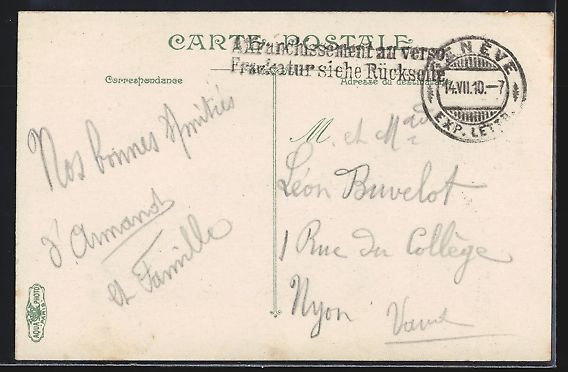 CARTE POSTALE
Affranchissement au verso
Frankatur siehe Rückseite
GENÈVE
14.VII.10.-7
EXP. LETTR.
Correspondance
Adresse du destinataire
Nos bonnes Amitiés
d'Armand
et Famille
M. et Mad
Léon Buvelot
1 Rue du Collège
Nyon
Vaud
AQUA PHOTO
PARIS